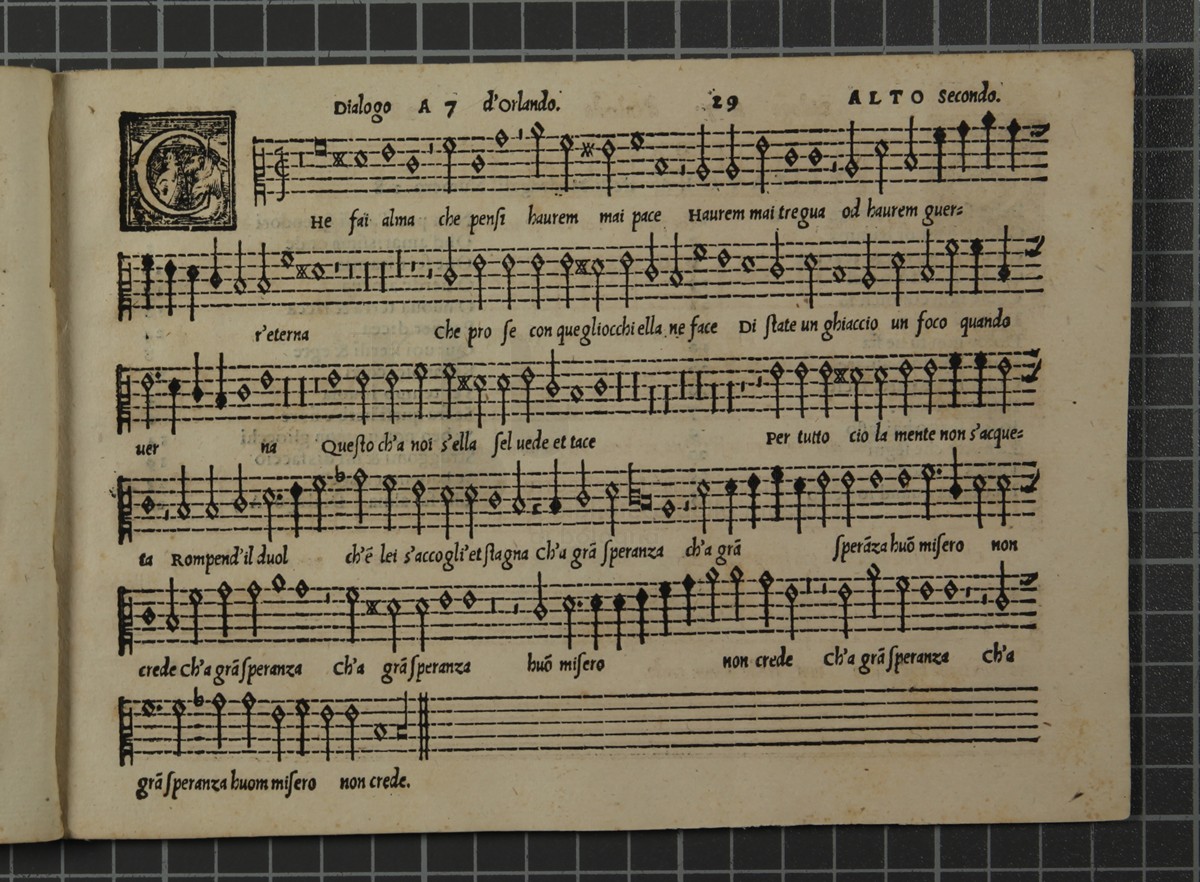 Dialogo A 7 d'Orlando. 29 ALTO Secondo.
CHe fai alma che penſi haurem mai pace Haurem mai tregua od haurem guer=
r'eterna Che pro ſe con que gliocchi ella ne face Di ſtate un ghiaccio un foco quando
uer na Queſto ch'a noi s'ella ſel uede et tace Per tutto cio la mente non s'acque=
ta Rompend'il duol ch'ē lei s'accogli'et ſtagna Ch'a grā ſperanza ch'a grā ſperāza huō miſero non
crede Ch'a grā ſperanza Ch'a grā ſperanza huō miſero non crede Ch'a grā ſperanza Ch'a
grā ſperanza huom miſero non crede.